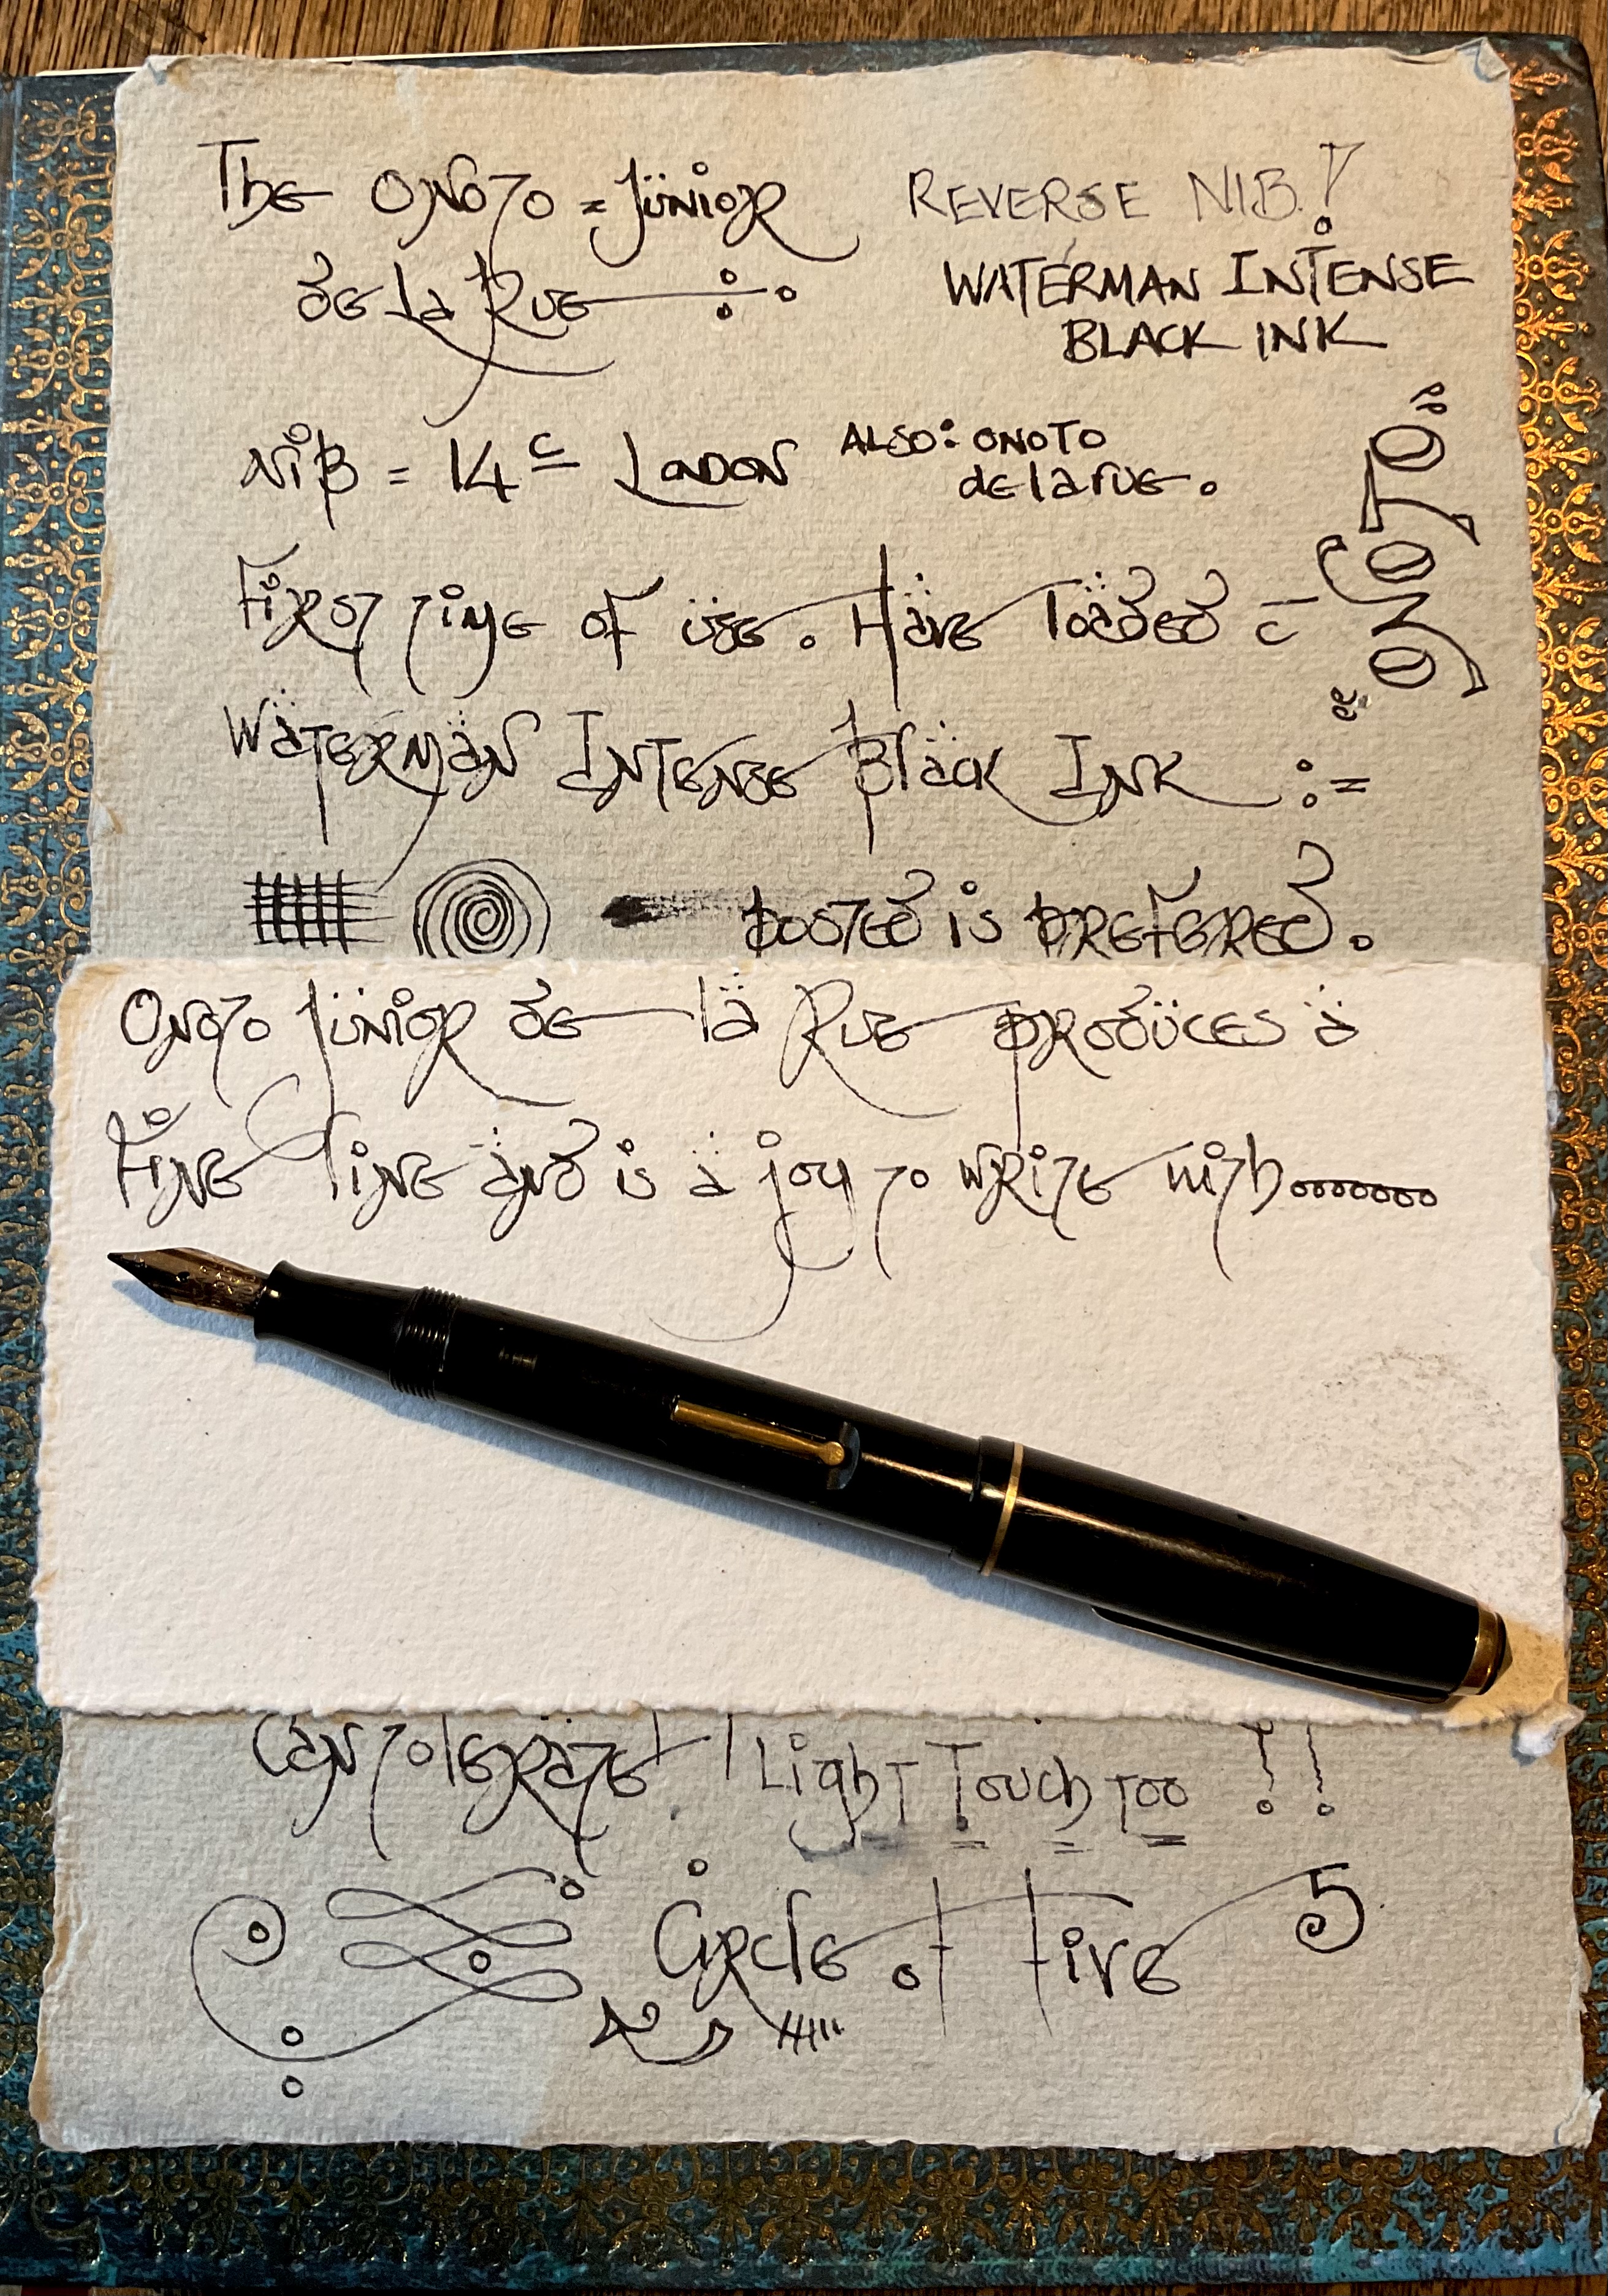 The Onoto = Junior
REVERSE NIB!
de la Rue
WATERMAN INTENSE
BLACK INK
NIB = 14c London
ALSO: ONOTO
de la rue.
ONOTO
First time of use. Have loaded c̄
Waterman Intense Black Ink :=
posted is prefered.
Onoto Junior de la Rue produces a
fine line and is a joy to write with.......
Can tolerate! Light Touch too !!
Circle of Five 5